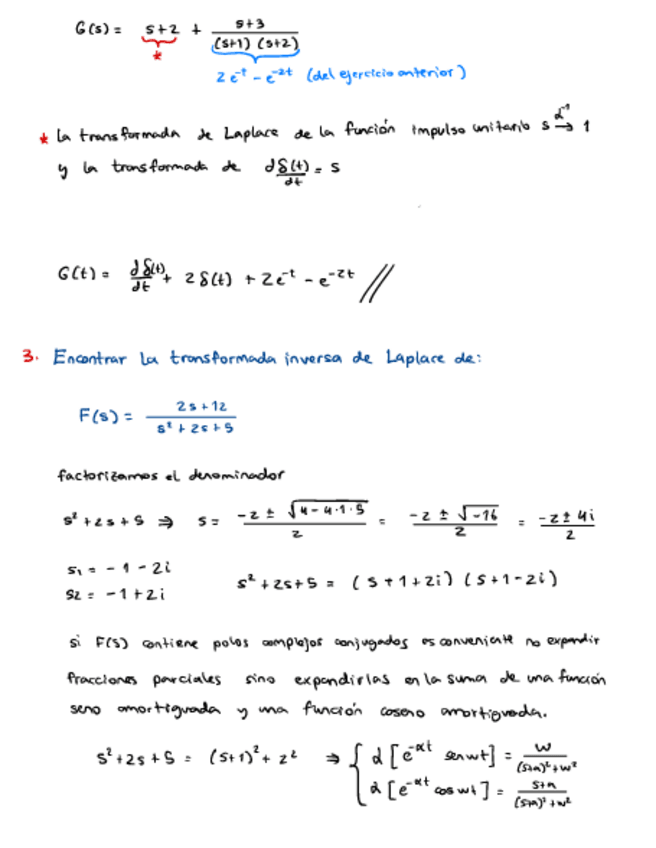 G(s) = s+2 + \frac{s+3}{(s+1) (s+2)}
*
2e^{-t} - e^{-2t} (del ejercicio anterior)
* La transformada de Laplace de la función impulso unitario s \xrightarrow{\mathcal{L}^{-1}} 1
y la transformada de \frac{dδ(t)}{dt} = s
G(t) = \frac{dδ(t)}{dt} + 2δ(t) + 2e^{-t} - e^{-2t} //
3. Encontrar la transformada inversa de Laplace de:
F(s) = \frac{2s+12}{s^2+2s+5}
factorizamos el denominador
s^2+2s+5 ⇒ s = \frac{-2 ± \sqrt{4-4·1·5}}{2} = \frac{-2 ± \sqrt{-16}}{2} = \frac{-2 ± 4i}{2}
s_1 = -1 - 2i
s_2 = -1 + 2i
s^2+2s+5 = (s+1+2i) (s+1-2i)
si F(s) contiene polos complejos conjugados es conveniente no expandir
fracciones parciales sino expandirlas en la suma de una función
seno amortiguada y una función coseno amortiguada.
s^2+2s+5 = (s+1)^2 + 2^2 ⇒ { \mathcal{L} [e^{-αt} sen wt] = \frac{w}{(s+a)^2+w^2}
\mathcal{L} [e^{-αt} cos wt] = \frac{s+a}{(s+a)^2+w^2}